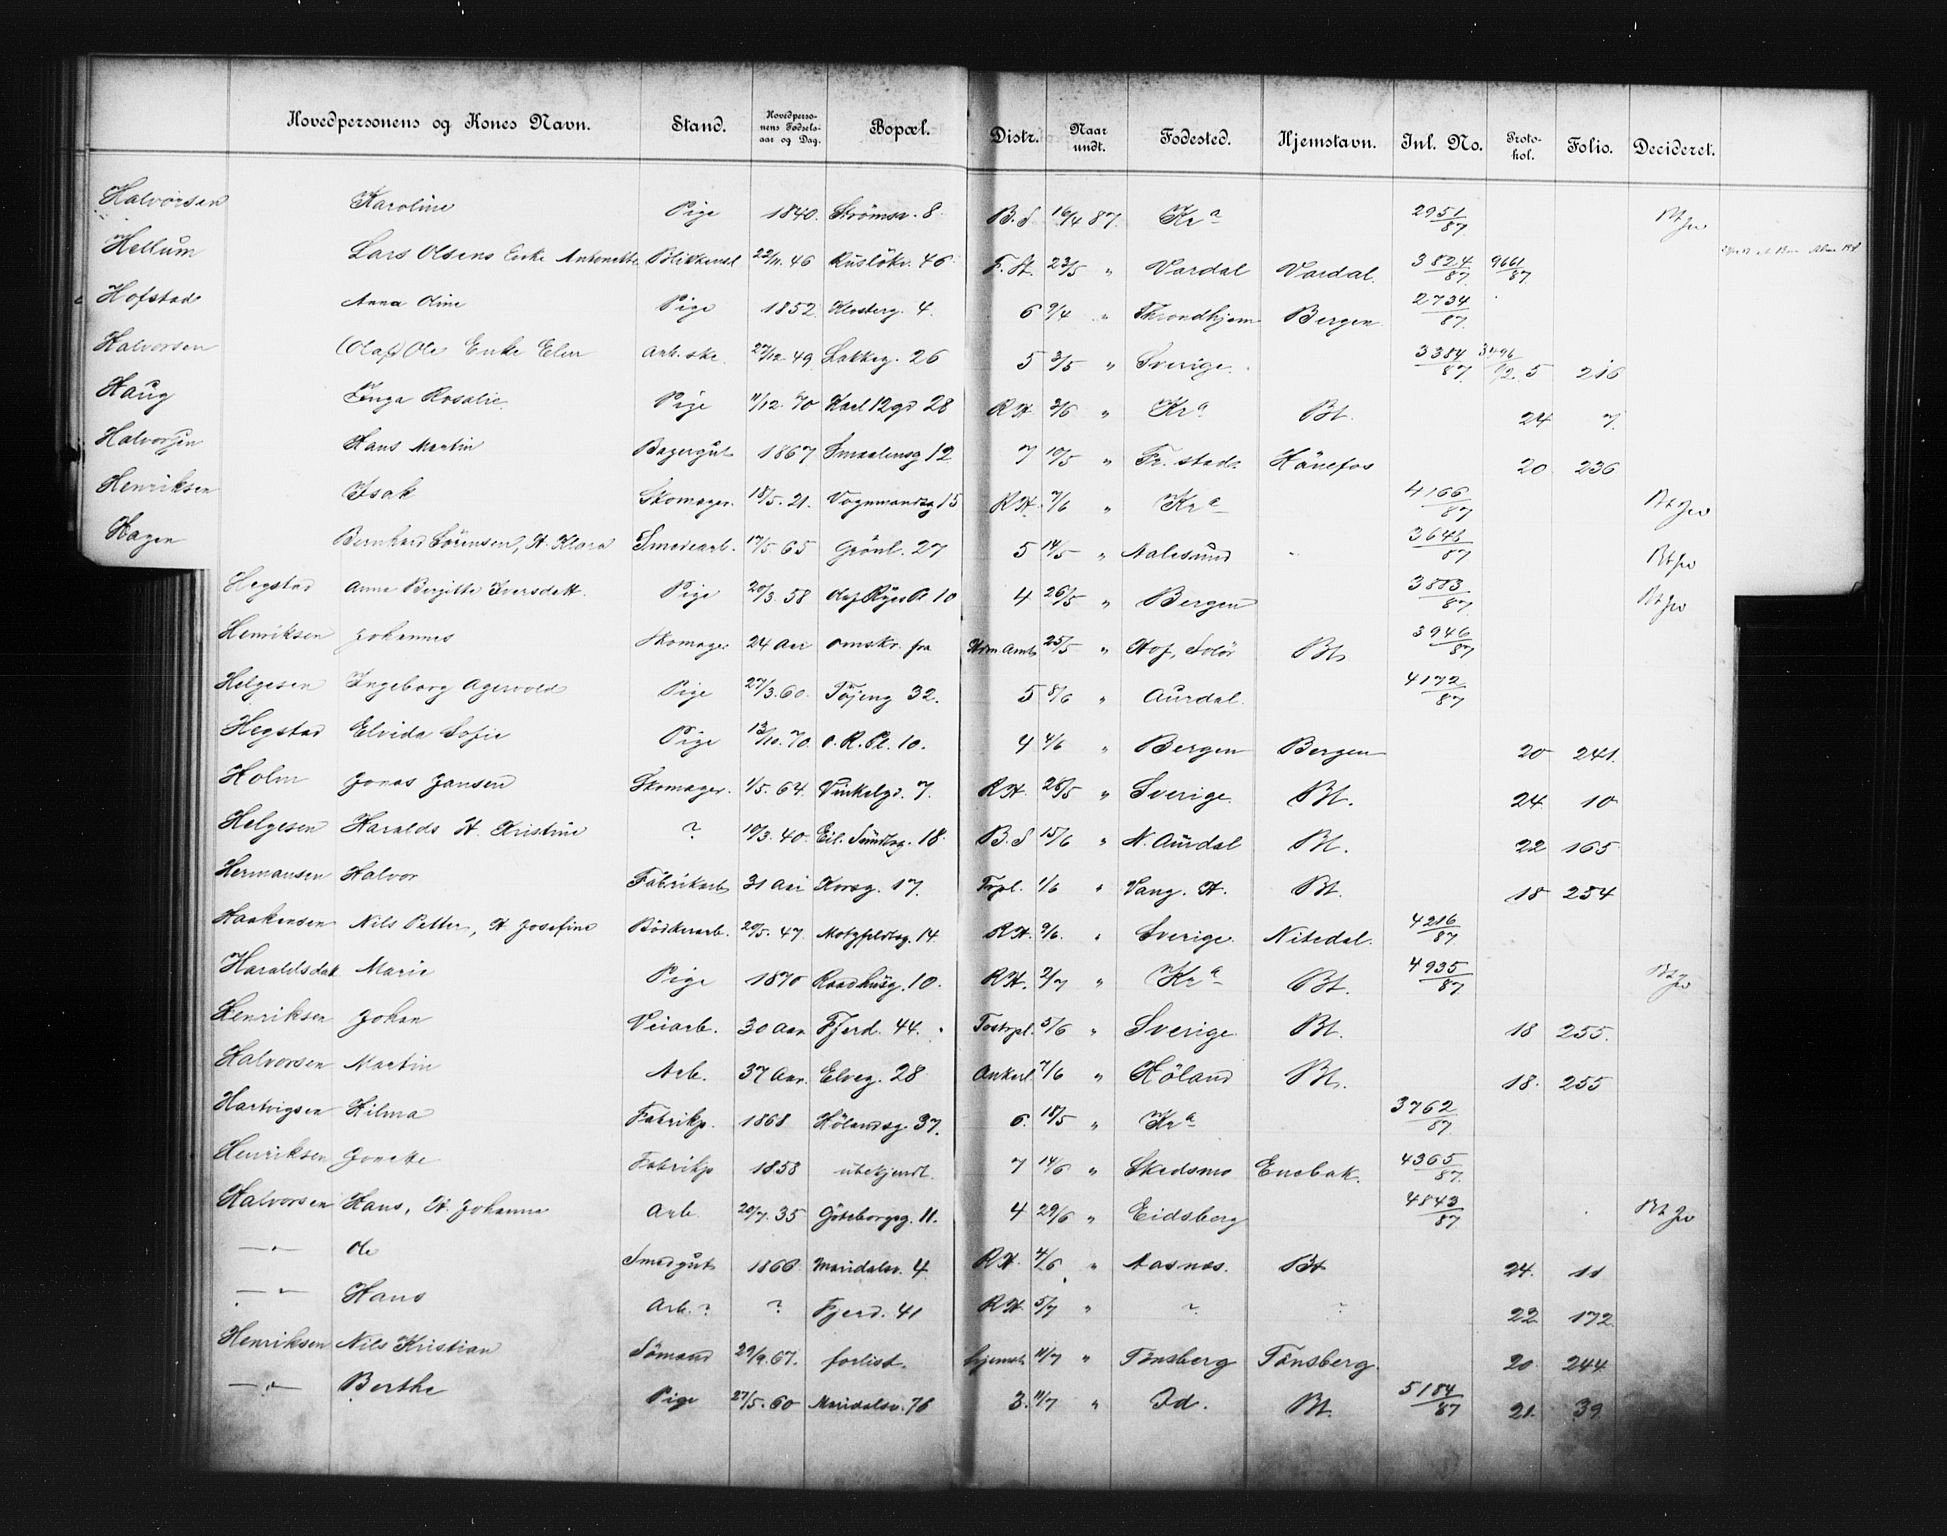 Hovedpersonens og Kones Navn. Stand. Hovedpersonens Fødselsaar og Dag. Bopæl. Distr. Naar undt. Fødested. Hjemstavn. Inl. No. Protokol. Folio. Decideret.
Halvorsen Karoline Pige 1840. Strømsv. 8. B.S. 16/4 87. Kra 2951/87
Hellum Lars Olsens Enke Antonette 22/11. 46 Rusløkv. 46. F. St. 23/5 " Vardal Vardal. 3824/87. 9661/87.
Hofstad Anna Oline Pige 1852. Klosterg. 4. 6 9/4 " Throndhjem Bergen 2734/87.
Halvorsen (Olaf) Ole Enke Elen Arb. ske 27/12. 49 Lakkeg. 26 5 3/5 " Sverige. 3384/87. 5 216
Haug Inga Rosalie. Pige 11/12. 70 Karl 12 gd 28 R.H. 3/6 " Kra Bt. 24 7.
Halvorsen Hans Martin Bagergut 1867 Smaalensg 12 7 10/5 " Fr. stad Hønefos 20 236
Henriksen Isak Skomager. 18/5. 21. Vognmandsg 15 R.H. 7/6 " Kra 4166/87
Hagen Bernhard Sørensen, H. Klara Smedearb. 17/5 65 Grønl. 27 5 14/5 " Aalesund 3643/87
Hegstad Anne Birgitte Iversdatt. Pige 20/3. 58 Olaf Ryes Pl 10 4 26/5 " Bergen 3883/87
Henriksen Johannes Skomager 24 Aar omskr. fra Hdm. Amt 25/5 " Hof, Solør Bt. 3946/87
Helgesen Ingeborg Agervold Pige 27/3. 60. Tøjeng 32. 5 8/6 " Aurdal. 4172/87
Hegstad Elvida Sofie Pige 13/10. 70. O. R. Pl. 10. 4 4/6 " Bergen Bergen 20 241.
Holm Jonas Jansen Skomager. 1/5. 64. Vinkelgd. 7. R.H. 28/5 " Sverige. Bt. 24 10
Helgesen Haralds H. Kristine ? 10/3. 40. Eil. Sundtsg. 18. B.S 15/6 " N. Aurdal Bt. 22 165
Hermansen Halvor Fabrikarb 31 Aar Korsg. 17. Trpl. 1/6 " Vang. H. Bt. 18 254
Haakensen Nils Petter, H. Josefine Bødkerarb. 20/5. 47. Motzfeldtsg. 14. R.H. 9/6. " Sverige. Nitedal. 4216/87
Haraldsdatt Marie Pige 1870 Raadhusg. 10. R.H. 2/7 " Kra Bt. 4935/87
Henriksen Johan Veiarb. 30 Aar Fjerd. 44. Tostrpl. 5/6 " Sverige Bt. 18 255.
Halvorsen Martin Arb. 37 Aar. Elveg. 28 Ankerl. 7/6 " Høland Bt. 18. 255
Hartvigsen Hilma Fabrikp. 1868 Hølandsg. 37. 6. 18/5 " Kra 3762/87.
Henriksen Jonette Fabrikp 1858 ubekjendt. 7 14/6 " Skedsmo Enebak. 4365/87.
Halvorsen Hans, H. Johanne Arb. 20/7. 35 Gøteborgsg. 11. 4 29/6 " Eidsberg 4843/87.
—"— Ole Smedgut 1866. Maridalsv. 4 R.H. 4/6 " Aasnæs. Bt 24. 11
—"— Hans Arb. ? ? Fjerd. 41 R.H. 5/7 " ? ? 22 172
Henriksen Nils Kristian Sømand 29/9. 67. forlist. hjemst. 11/7 " Tønsberg Tønsberg. 20. 244
—"— Berthe Pige 27/5. 60 Maridalsv. 76 3. 11/7 " Id. Bt. 5184/87 21. 39